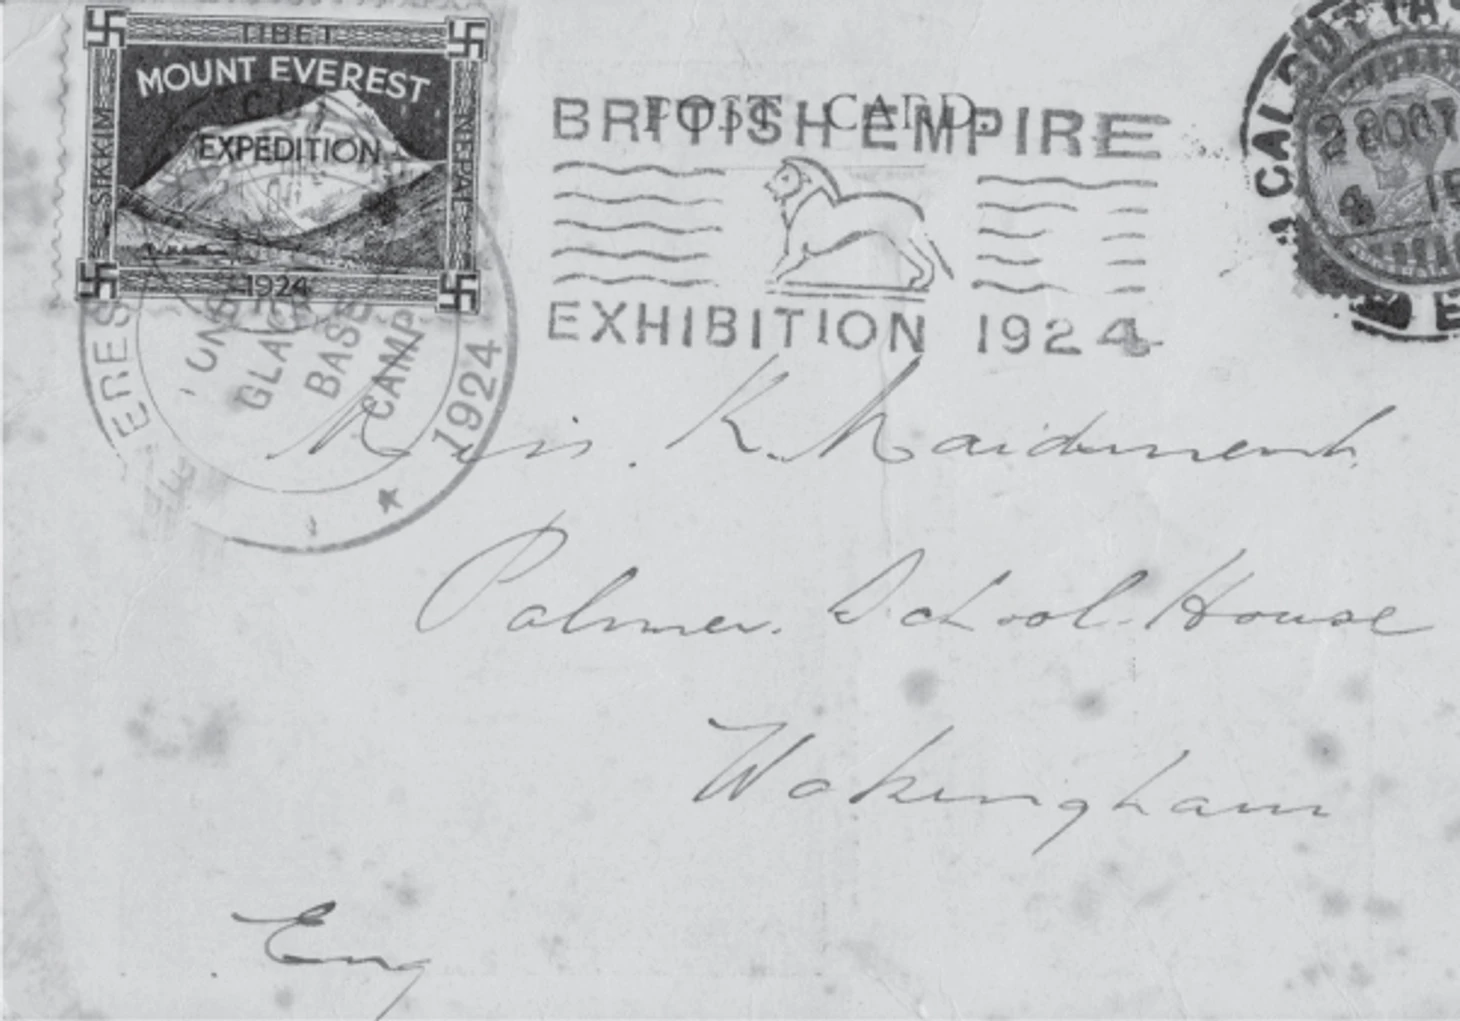 TIBET
MOUNT EVEREST
EXPEDITION
SIKKIM
NEPAL
1924
POST CARD.
BRITISH EMPIRE
EXHIBITION 1924
CALCUTTA
28 OCT
BASE
CAMP
1924
Miss. K. Maidment
Palmer. School. House
Wokingham
Eng